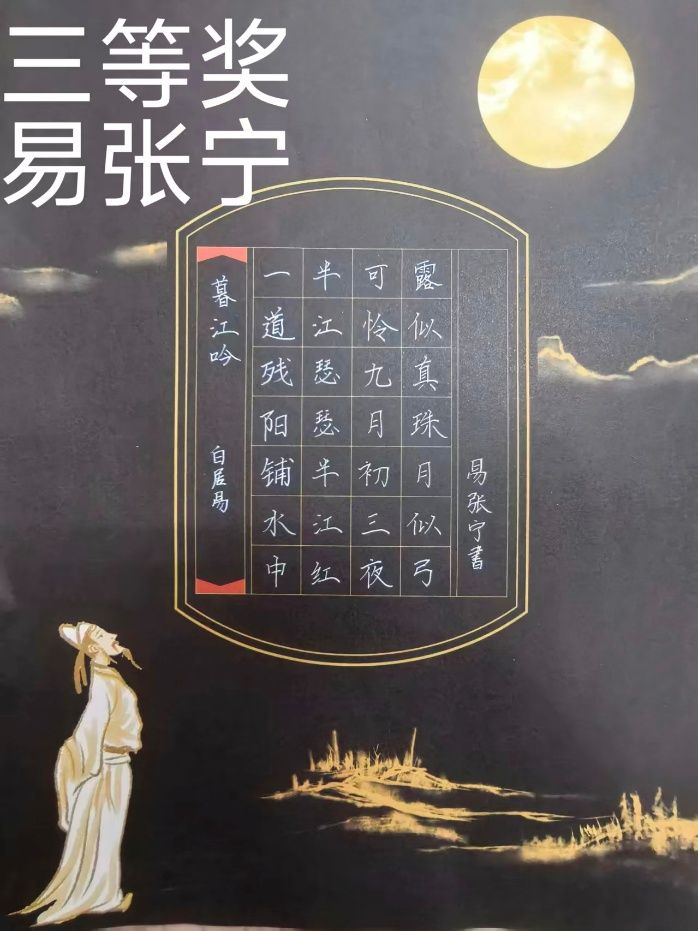 三等奖
易张宁
暮江吟
白居易
一道残阳铺水中
半江瑟瑟半江红
可怜九月初三夜
露似真珠月似弓
易张宁书